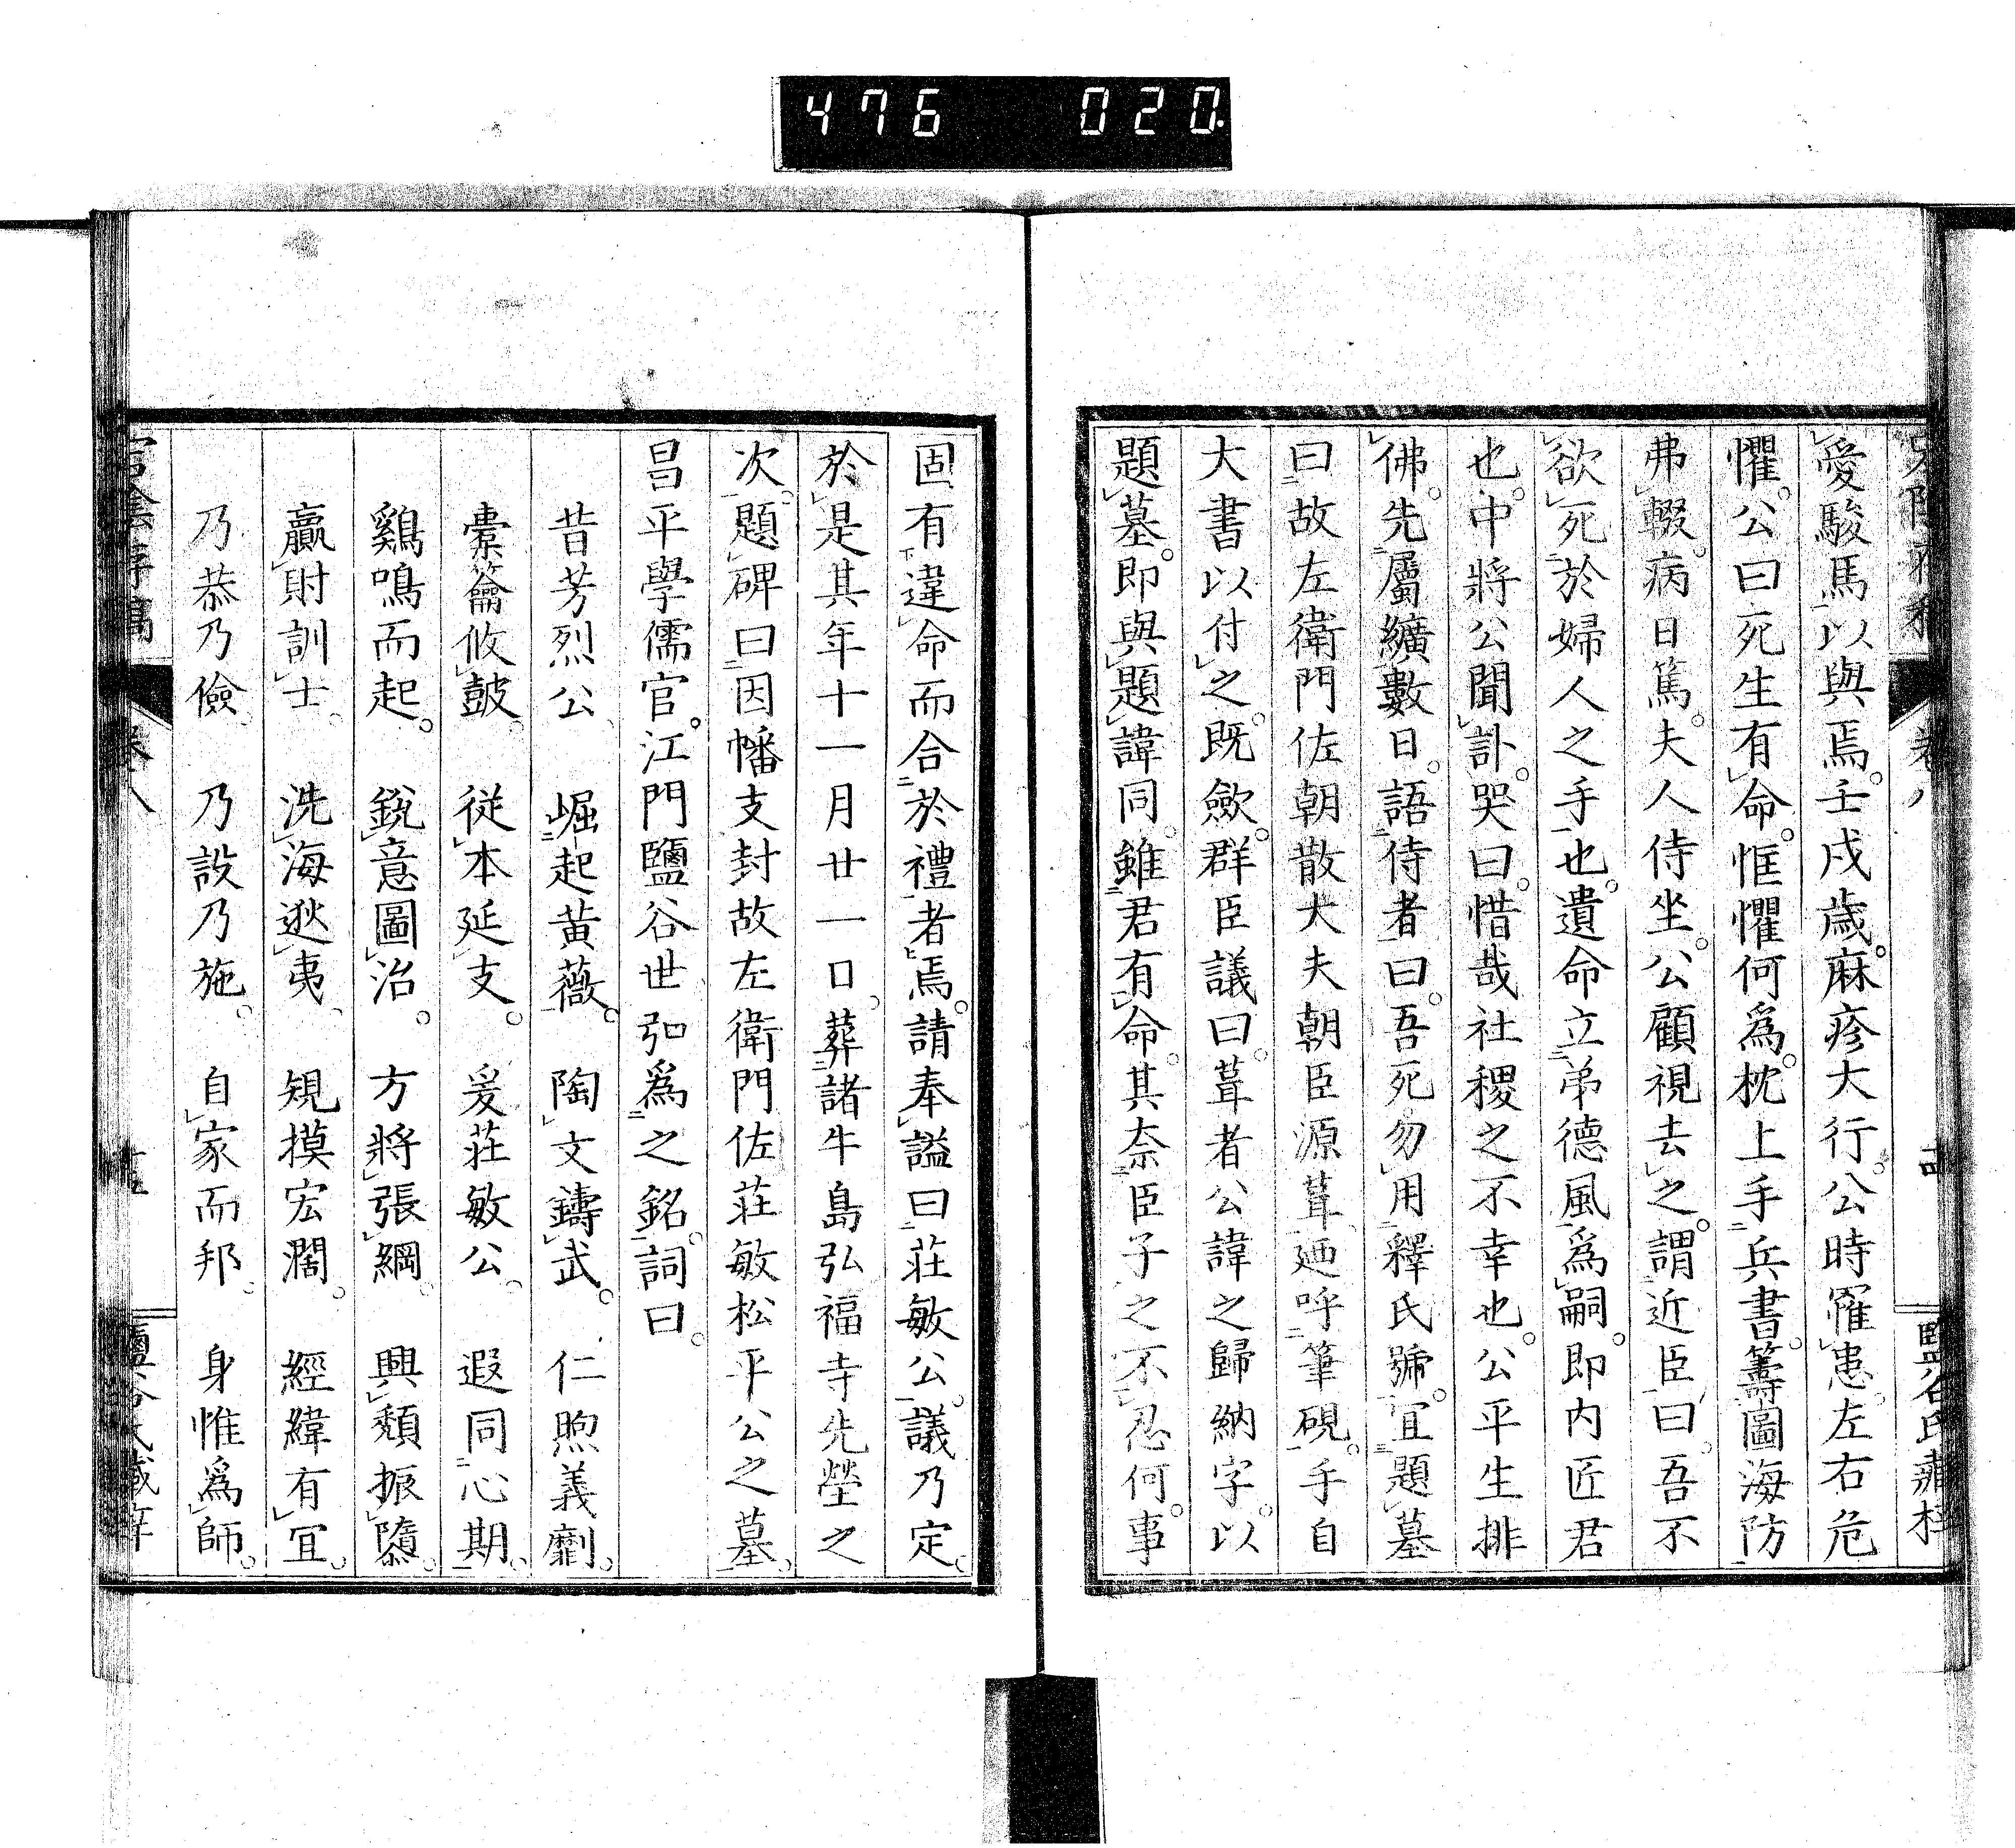 476 020
愛駿馬以與焉。壬戌歳。麻疹大行。公時罹患。左右危
懼。公曰死生有命。恇懼何爲。枕上手兵書。籌圖海防
弗輟。病日篤。夫人侍坐。公顧視去之。謂近臣曰。吾不
欲死於婦人之手也。遺命立弟德風爲嗣。即内匠君
也。中將公聞訃。哭曰。惜哉社稷之不幸也。公平生排
佛。先屬纊數日。語侍者曰。吾死勿用釋氏號。宜題墓
曰故左衛門佐朝散大夫朝臣源葺。廼呼筆硯。手自
大書以付之。既歛。群臣議曰。葺者公諱之歸納字。以
題墓。即與題諱同。雖君有命。其奈臣子之不忍何。事
固有違命而合於禮者焉。請奉謚曰莊敏公。議乃定。
於是其年十一月廿一口。葬諸牛島弘福寺先塋之
次。題碑曰因幡支封故左衛門佐莊敏松平公之墓。
昌平學儒官。江門鹽谷世弘爲之銘。詞曰。
昔芳烈公。 崛起黄薇。 陶文鑄武。 仁煦義劘。
櫜籥攸鼓。 從本延支。 爰莊敏公。 遐同心期。
鷄鳴而起。 鋭意圖治。 方將張綱。 興頽振隳。
贏財訓士。 洗海逖夷。 規摸宏濶。 經緯有宜。
乃恭乃儉。 乃設乃施。 自家而邦。 身惟爲師。